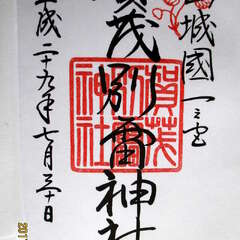 城國一之宮
賀茂別雷神社
賀茂
神社
平成二十九年七月三十日